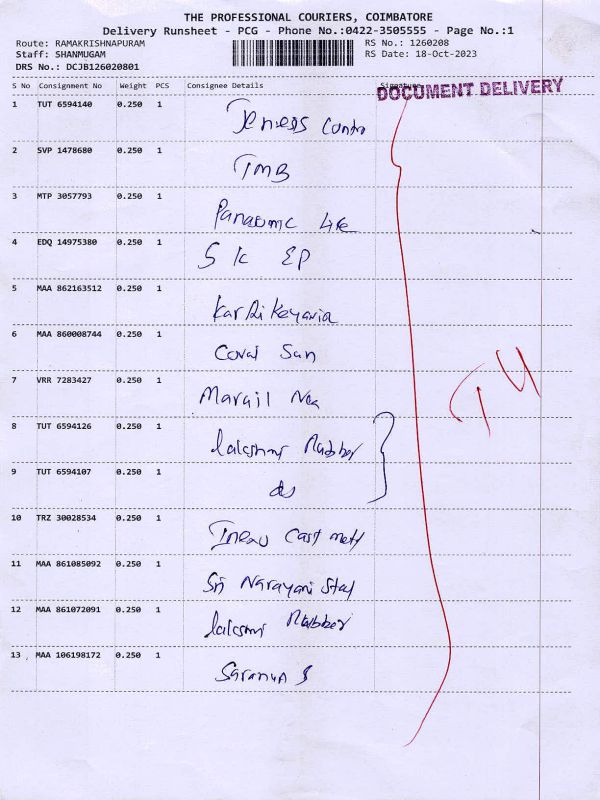 THE PROFESSIONAL COURIERS, COIMBATORE
Delivery Runsheet - PCG - Phone No.:0422-3505555 - Page No.:1
Route: RAMAKRISHNAPURAM RS No.: 1260208
Staff: SHANMUGAM RS Date: 18-Oct-2023
DRS No.: DCJB126020801
S No Consignment No Weight PCS Consignee Details Signature
DOCUMENT DELIVERY
1 TUT 6594140 0.250 1
2 SVP 1478680 0.250 1 TMB
3 MTP 3057793 0.250 1 Life
4 EDQ 14975380 0.250 1 S K EP
5 MAA 862163512 0.250 1
6 MAA 860008744 0.250 1 Covai Sun
7 VRR 7283427 0.250 1
8 TUT 6594126 0.250 1 lakshmi Rubber
9 TUT 6594107 0.250 1 do
10 TRZ 30028534 0.250 1 Cast
11 MAA 861085092 0.250 1 Sri Narayani
12 MAA 861072091 0.250 1 lakshmi Rubber
13 MAA 106198172 0.250 1 S